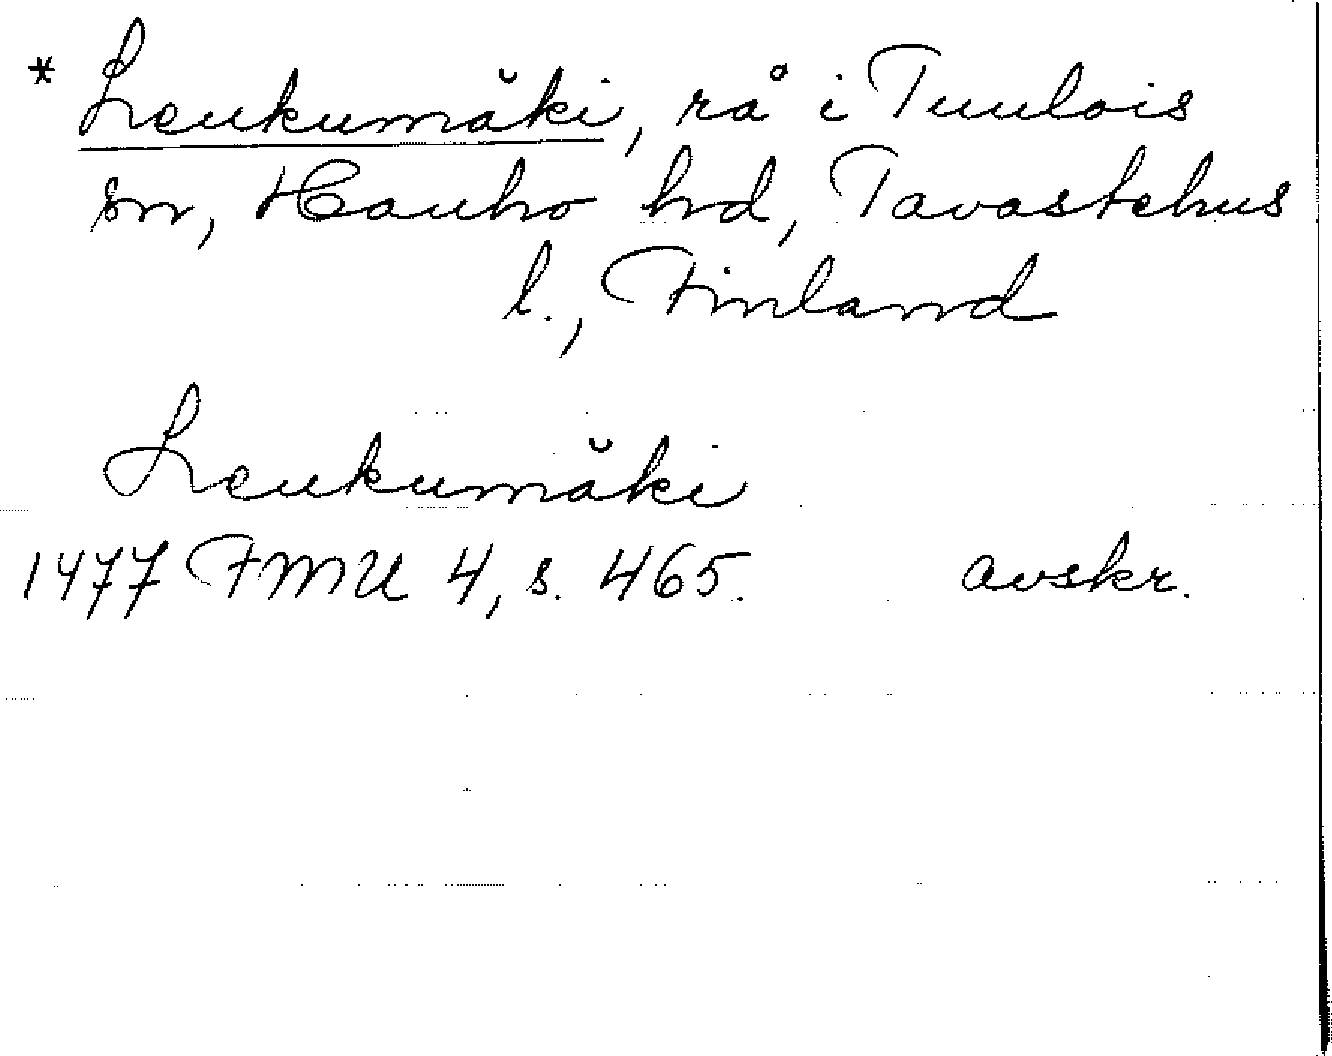 * Leukumäki, rå i Tuulois
sn, Hauho hd, Tavastehus
l., Finland
Leukumäki
1477 FMU 4, s. 465. avskr.